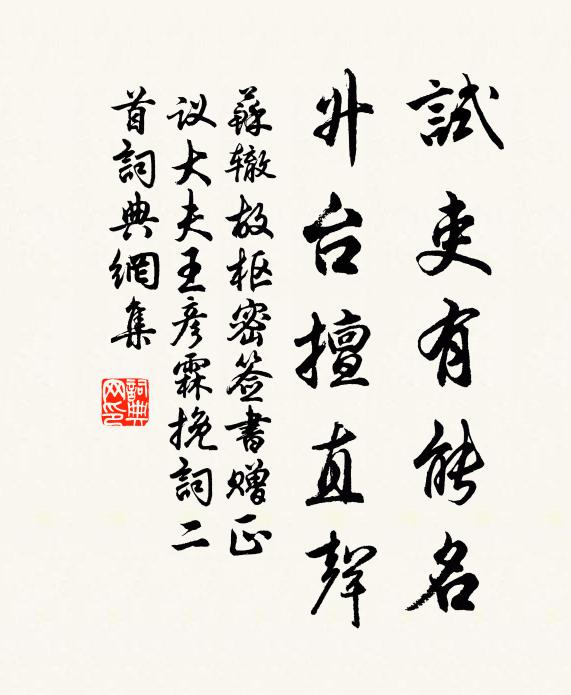 試吏有能名
升台擅直聲
蘇辙故枢密签書赠正
议大夫王彦霖挽詞二
首詞典網集
詞典
网印